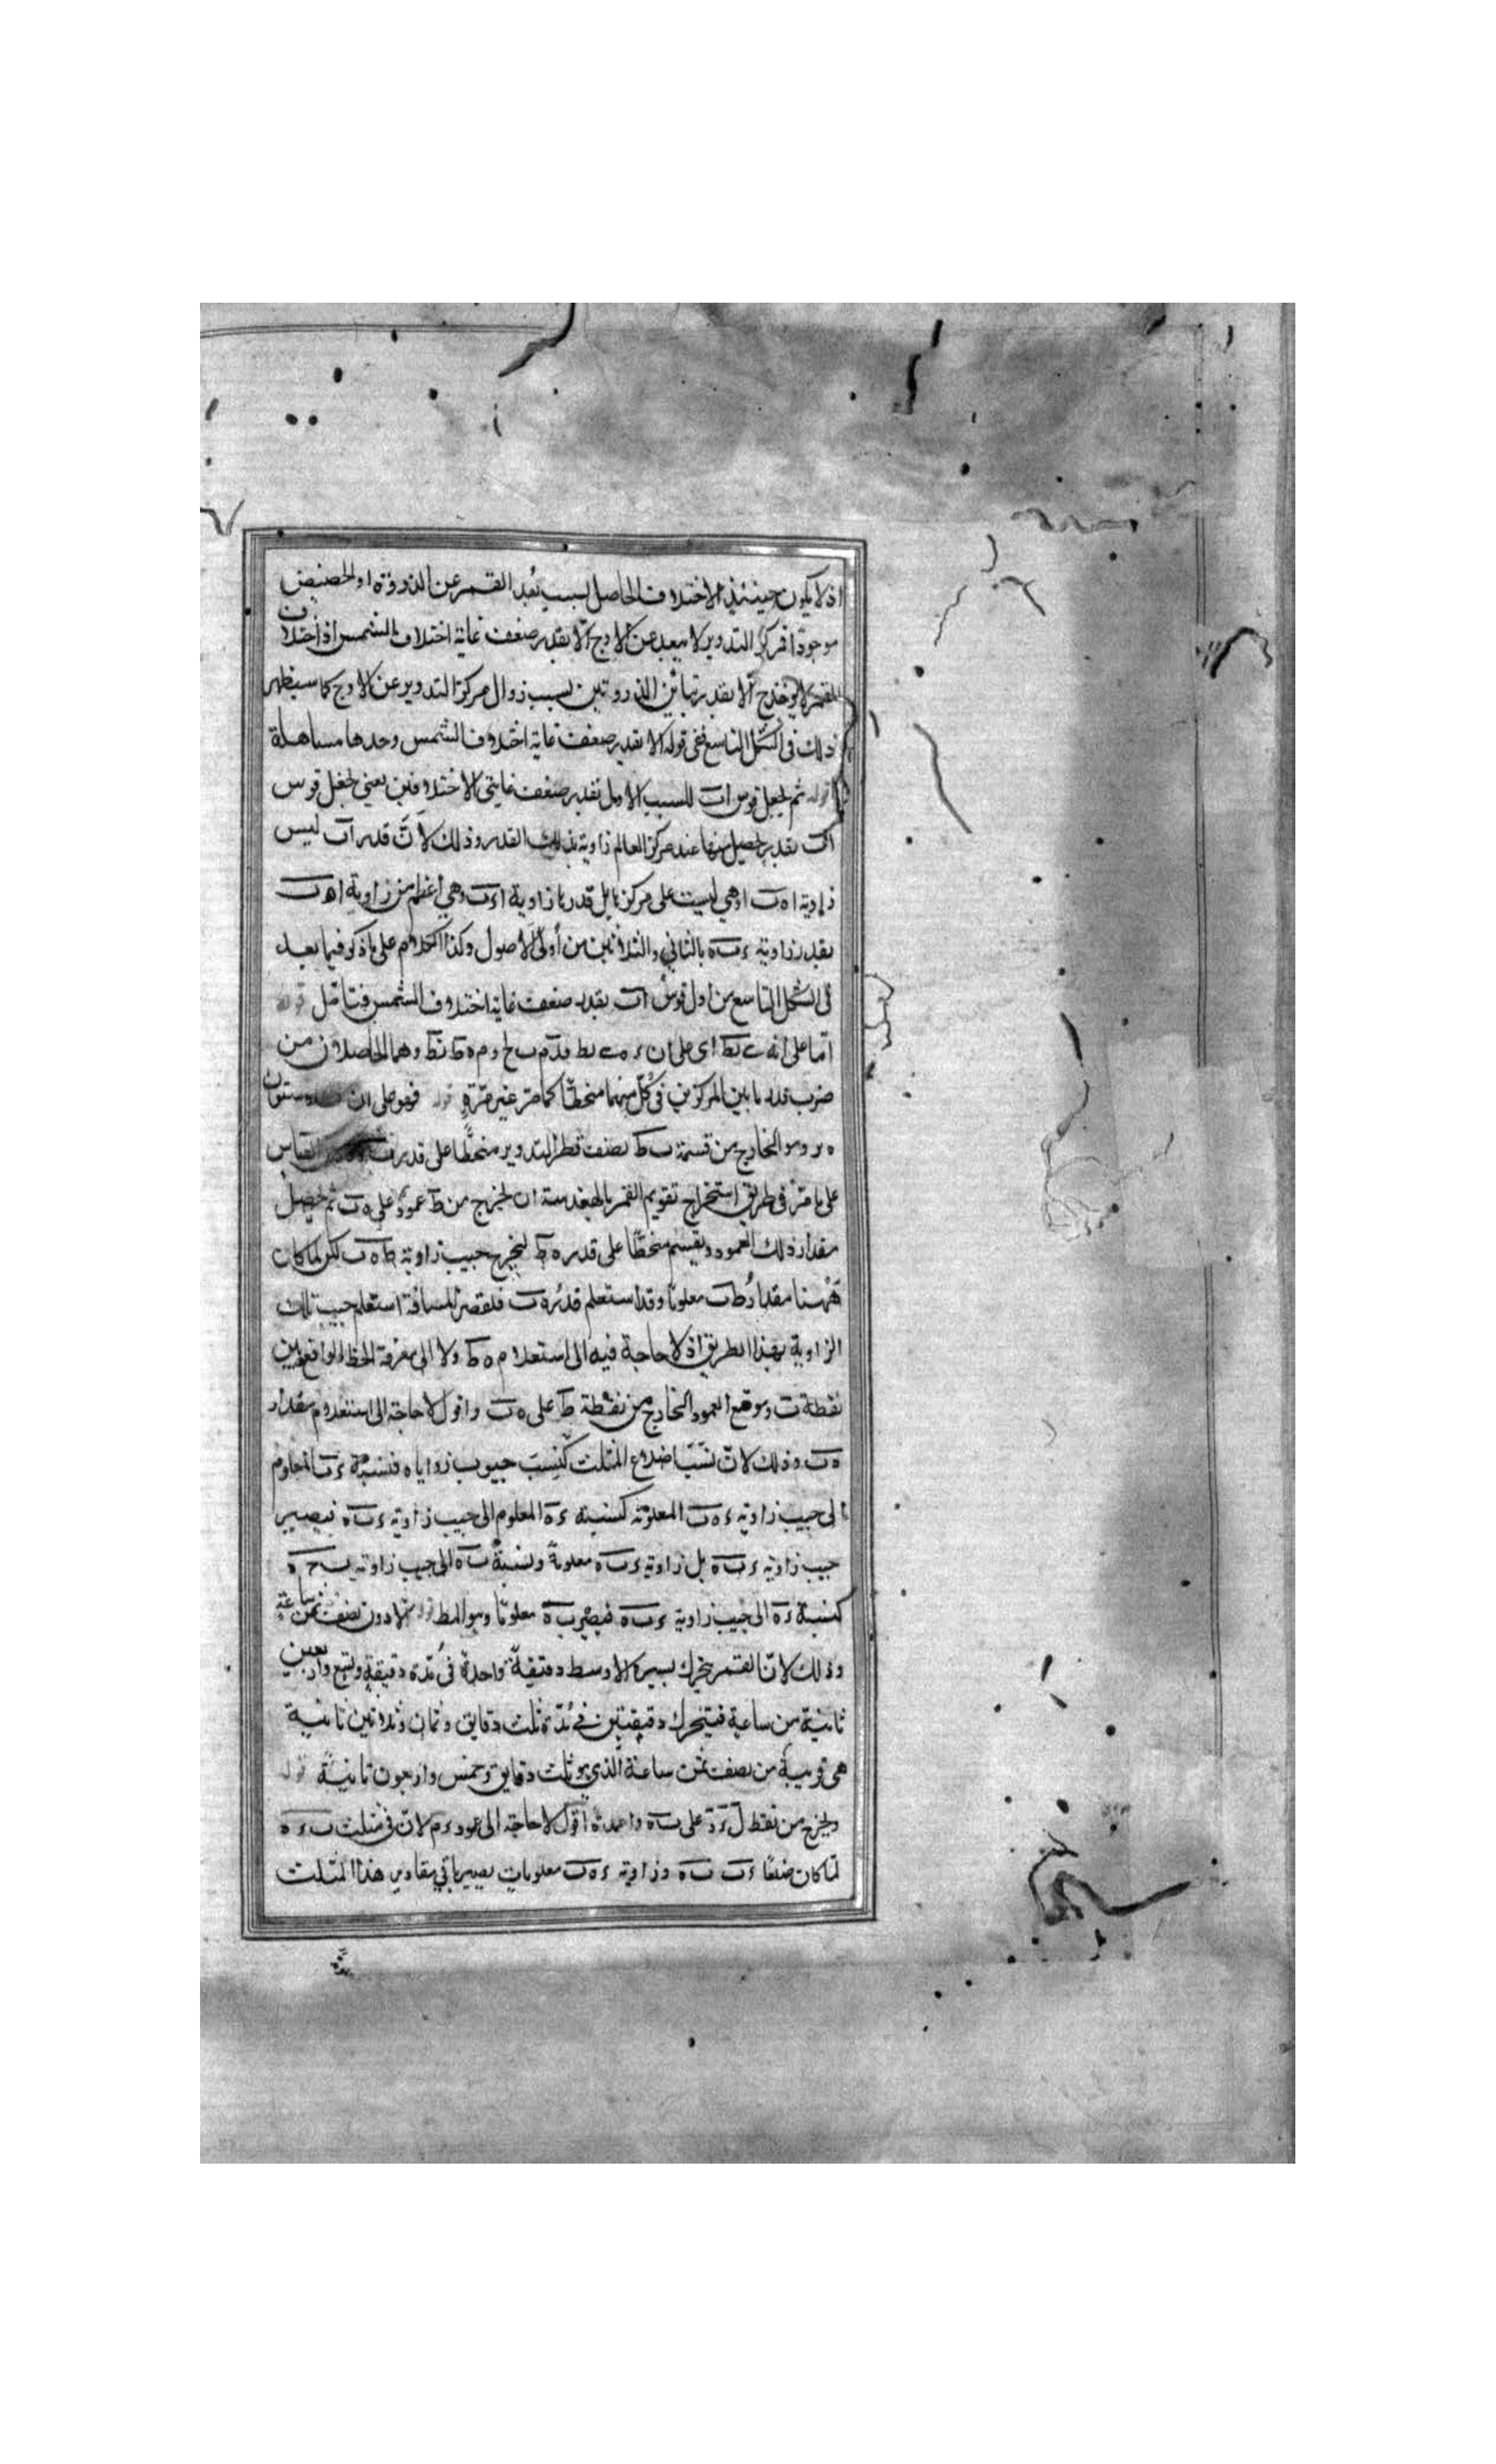 اذ لا يكون حينئذ الاختلاف الحاصل بسبب بُعد القمر عن الذروة او الحضيض
موجودًا فمركز التدوير لا يبعد عن الاوج الّا بقدر ضعف غاية اختلاف الشمس اذ اختلاف
القمر لا يوخذ ح الّا بقدر تباين الذروتين بسبب زوال مركز التدوير عن الاوج كما سيظهر
ذلك فى الشكل التاسع ففى قوله الا بقدر ضعف غاية اختلاف الشمس وحدها مساهلة
قوله ثم نجعل قوس اب للسبب الاول بقدر ضعف غايتى الاختلافين يعنى نجعل قوس
اب بقدر يحصل منها عند مركز العالم زاوية بذلك القدر وذلك لانّ قدر اب ليس
زاوية ا ه ب اذ هي ليست على مركز بل قدرها زاوية ا ء ب وهي اعظم من زاوية ا ه ب
بقدر زاوية ء ب ه بالثاني والثلاثين من أولى الاصول وكذا الكلام على ما ذكر فيما بعد
فى الشكل التاسع من اول قوس اب بقدر ضعف غاية اختلاف الشمس فتامّل قوله
امّا على انه ى نط اى على ان ء ه ى نط فدم ب ح و م ه ط نط وهما الحاصلان من
ضرب قدر ما بين المركزين فى كلّ منهما منحطًّا كما مرّ غير مرّةٍ قوله فهو على ان ستون
ه ر وهو الخارج من قسمة ب ط نصف قطر التدوير منحطًّا على قدر القياس
على ما مرّ فى طريق استخراج تقويم القمر بالهندسة ان نخرج من ط عمودً على ه ب ثم نحصل
مقدار ذلك العمود ونقسم منحطًّا على قدر ه ط ليخرج جيب زاوية ط ه ب لكن لما كان
هٰهنا مقدارُ ط ب معلومًا وقد استعلم قدرُ ه ب فلقصر المسافة استعلم جيب تلك
الزاوية بهذا الطريق اذ لا حاجة فيه الى استعلام ه ط ولا الى معرفة الخط الواقع بين
نقطة ب وموقع العمود الخارج من نقطة ط على ه ب واقول لا حاجة الى استعلام مقدار
ه ب وذلك لانّ نسب اضلاع المثلث كنِسب جيوب زواياه فنسبة ء ب المعلوم
الى جيب زاوية ء ه ب المعلومة كنسبة ء ه المعلوم الى جيب زاوية ء ب ه فيصير
جيب زاوية ء ب ه بل زاوية ء ب ه معلومةً ونسبةُ ب ه الى جيب زاوية ب ح ه
كنسبة ء ه الى جيب زاوية ء ب ه فيصير ب ه معلومًا وهو المط قوله الا دون نصف ثمن ساعةٍ
وذلك لانّ القمر يتحرك بسيره الاوسط دقيقةً واحدةً فى مُدّة دقيقةٍ وتسع واربعين
ثانيةً من ساعة فيتحرك دقيقتين فى مُدّة ثلث دقايق وثمان وثلاثين ثانية
هى قريبة من نصف ثمن ساعة الذي هو ثلث دقايق وخمس واربعون ثانيةً قوله
ونخرج من نقط ل ء د على ب ه واعمدة اقول لا حاجة الى عمود ء م لانّ فى مثلث ب ء ه
لمّا كان ضلعَا ء ب ب ه وزاوية ء ه ب معلومات يصير باقي مقادير هذا المثلث